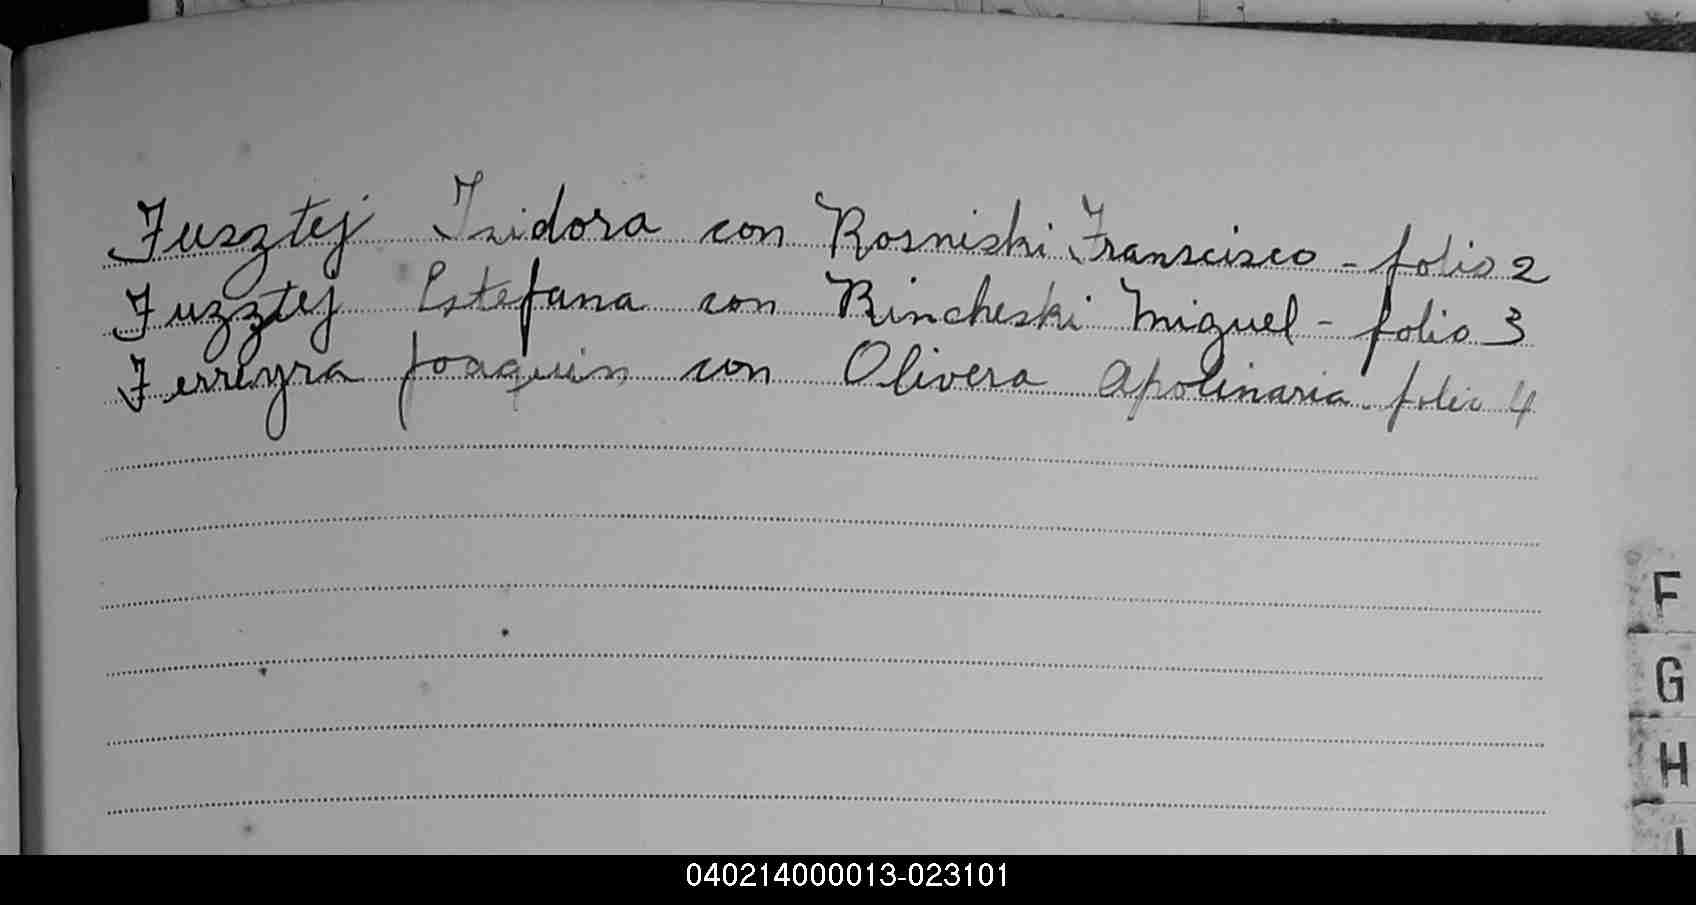 Fusztej Izidora con Rosniski Franscisco - folio 2
Fuzztej Estefana con Rincheski Miguel - folio 3
Ferreyra Joaquin con Olivera Apolinaria. folio 4
F
G
H
I
040214000013-023101